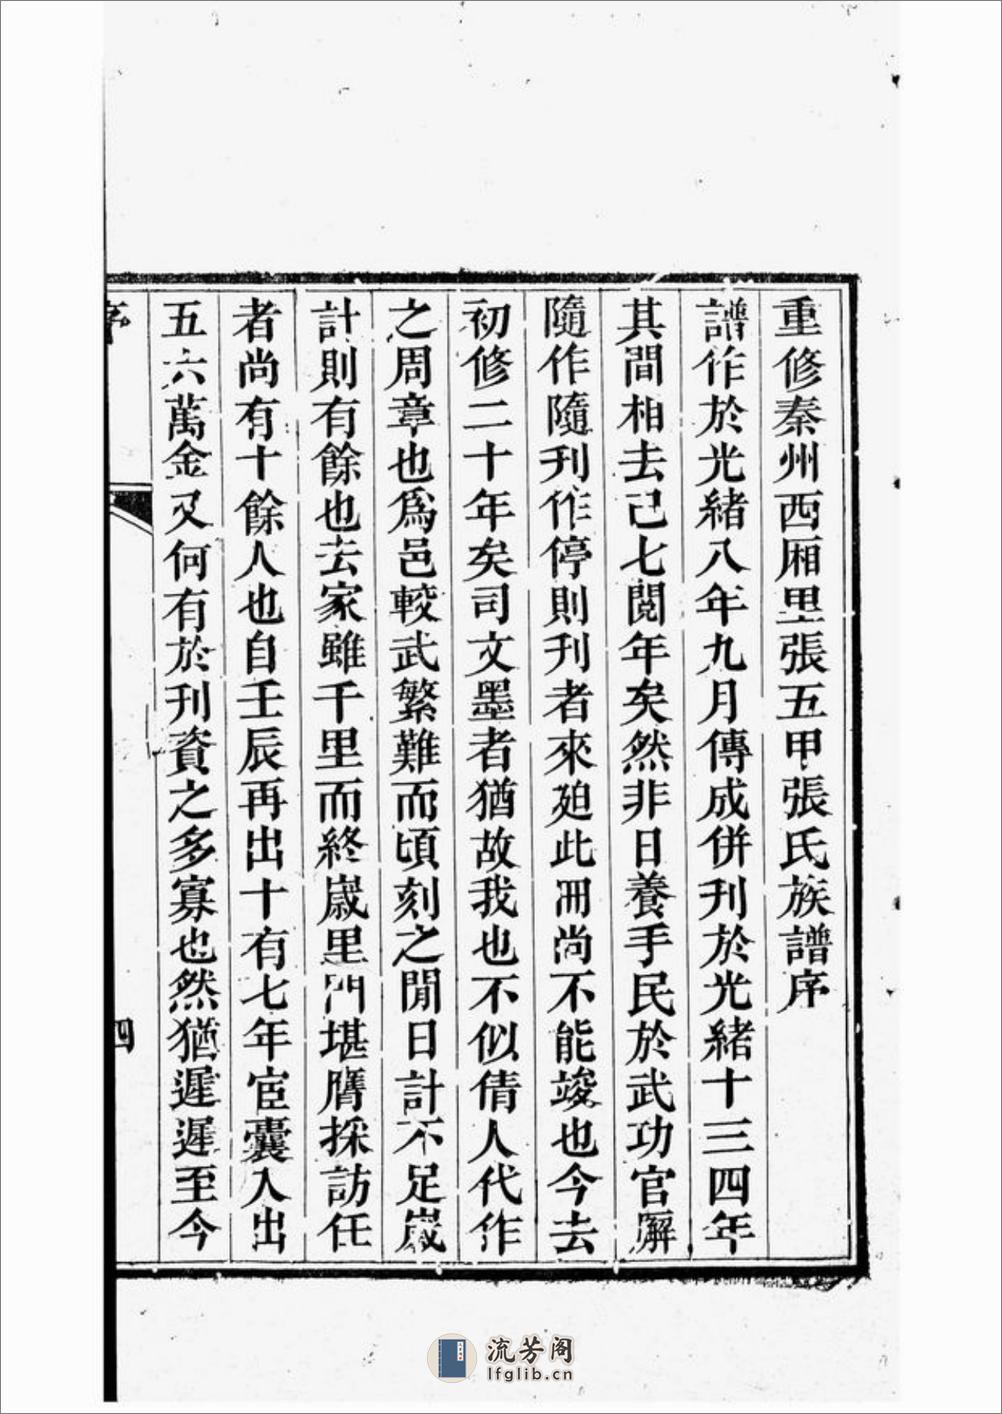 重修秦州西厢里張五甲張氏族譜序
譜作於光緒八年九月傳成併刊於光緒十三四年
其間相去已七閱年矣然非日養手民於武功官廨
隨作隨刊作停則刊者來廹此冊尚不能竣也今去
初修二十年矣司文墨者猶故我也不似倩人代作
之周章也爲邑較武繁難而頃刻之閒日計不足嵗
計則有餘也去家雖千里而終嵗里門堪膺採訪任
者尚有十餘人也自壬辰再出十有七年宦囊入出
五六萬金又何有於刊資之多寡也然猶遲遲至今
序
四
流芳阁
lfglib.cn